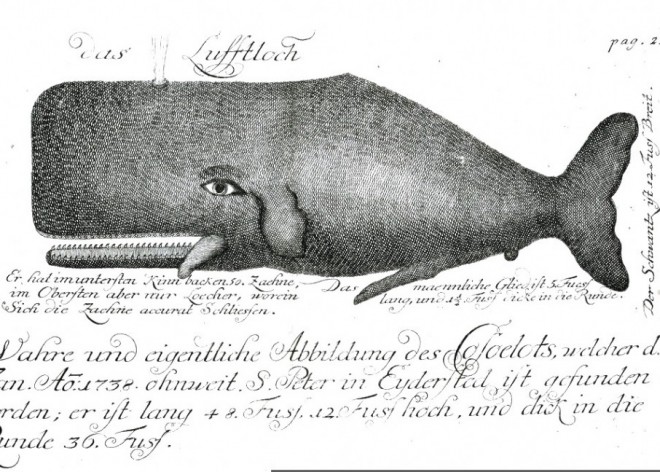 das Lufftloch
pag. 2
Er hat im untersten Kinn backen 50. Zaehne,
im Obersten aber nur Loecher, worein
Sich die Zaehne accurat Schliessen.
Das maennliche Glied ist 5. Fuss
lang, und 1½ Fuss dicke in die Runde.
Der Schwantz ist 12 Fuss Breit.
Wahre und eigentliche Abbildung des welcher d
Aõ: 1738. ohnweit S. Peter in Eydersted ist gefunden
rden; er ist lang 48. Fuss. 12. Fuss hoch, und dick in die
unde 36. Fuss.